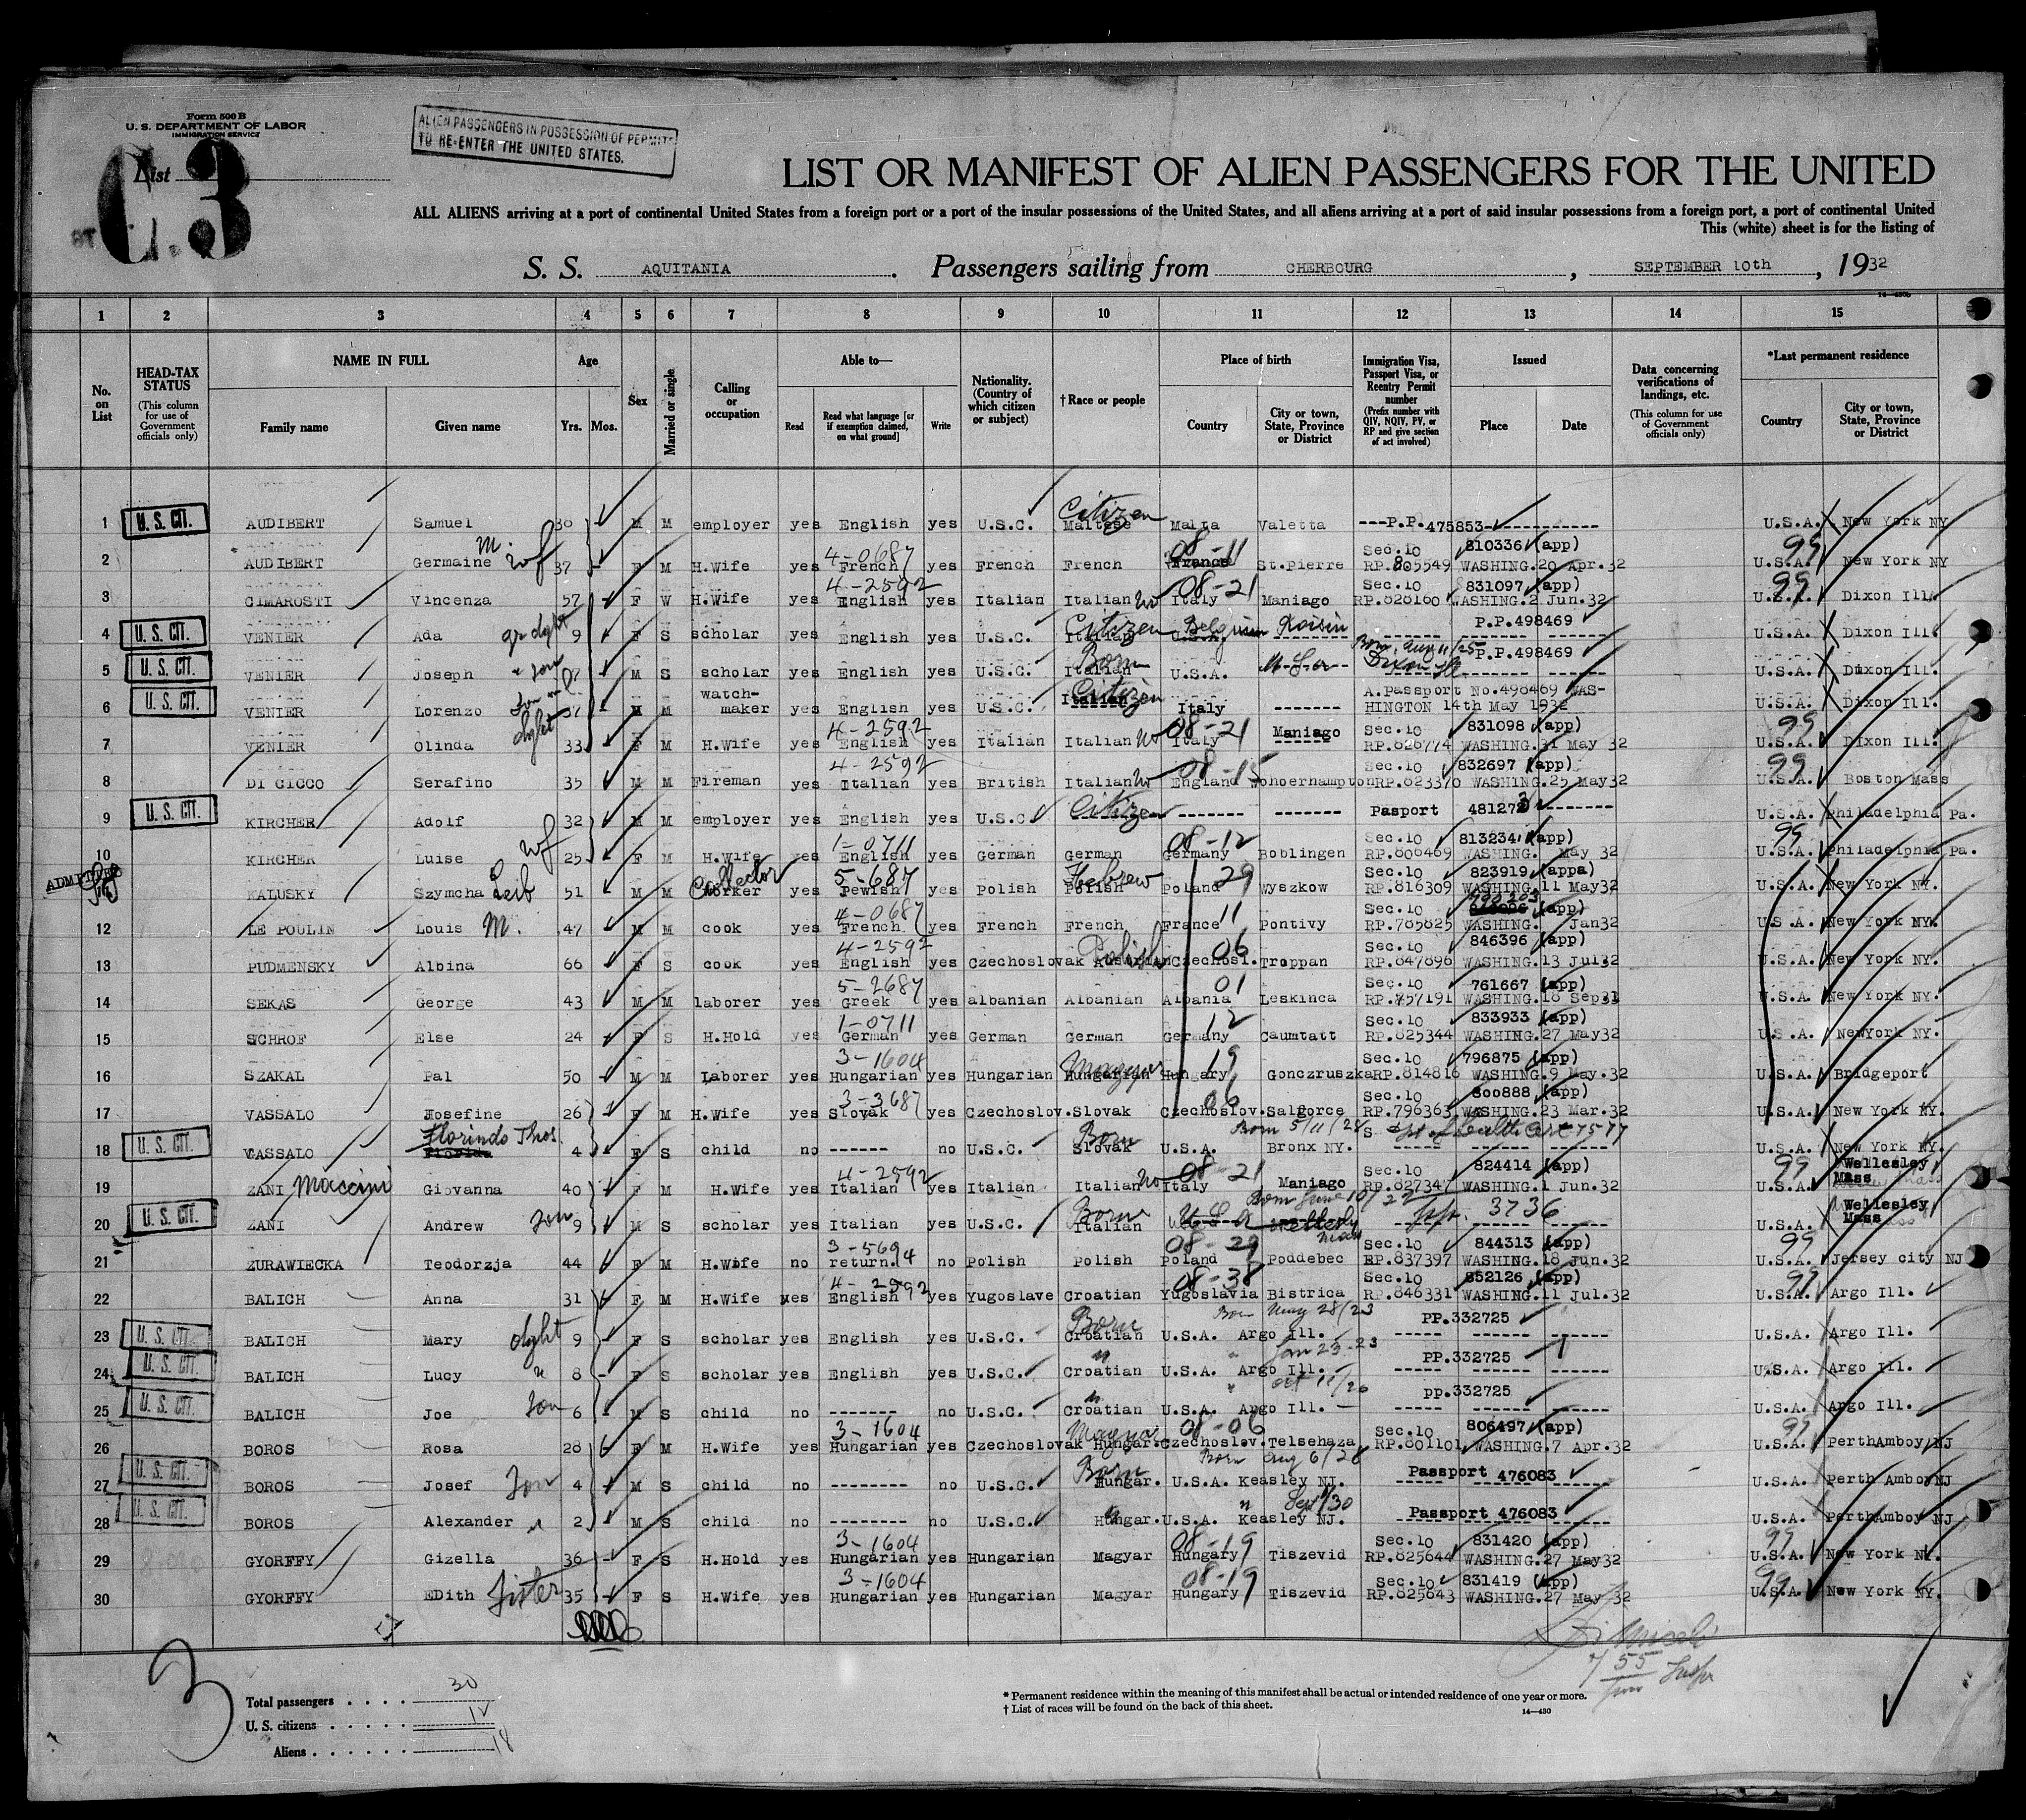 Form 500 B
U. S. DEPARTMENT OF LABOR
IMMIGRATION SERVICE
ALIEN PASSENGERS IN POSSESSION OF PERMITS
TO RE-ENTER THE UNITED STATES.
List C.3
LIST OR MANIFEST OF ALIEN PASSENGERS FOR THE UNITED
ALL ALIENS arriving at a port of continental United States from a foreign port or a port of the insular possessions of the United States, and all aliens arriving at a port of said insular possessions from a foreign port, a port of continental United
This (white) sheet is for the listing of
S. S. AQUITANIA. Passengers sailing from CHERBOURG, SEPTEMBER 10th, 1932
14-430b
1 2 3 4 5 6 7 8 9 10 11 12 13 14 15
No. on List
HEAD-TAX STATUS (This column for use of Government officials only)
NAME IN FULL Family name Given name
Age Yrs. Mos.
Sex
Married or single
Calling or occupation
Able to— Read Read what language [or if exemption claimed, on what ground] Write
Nationality. (Country of which citizen or subject)
† Race or people
Place of birth Country City or town, State, Province or District
Immigration Visa, Passport Visa, or Reentry Permit number (Prefix number with QIV, NQIV, PV, or RP and give section of act involved)
Issued Place Date
Data concerning verifications of landings, etc. (This column for use of Government officials only)
*Last permanent residence Country City or town, State, Province or District
1 U.S. CIT. AUDIBERT Samuel 38 M M employer yes English yes U.S.C. Citizen Maltese Malta Valetta ---P.P. 475853 U.S.A. New York NY
2 AUDIBERT Germaine M. wf 37 F M H.Wife yes 4-0687 French yes French French 08-11 France St.Pierre Sec.10 RP.805549 810336 (app) WASHING.20 Apr.32 99 U.S.A. New York NY
3 CIMAROSTI Vincenza 57 F W H.Wife yes 4-2592 English yes Italian Italian No 08-21 Italy Maniago Sec.10 RP.828160 831097 (app) WASHING.2 Jun.32 99 U.S.A. Dixon Ill.
4 U.S. CIT. VENIER Ada gr dght 9 F S scholar yes English yes U.S.C. Citizen Italian U.S.A. Belgium Roisin P.P.498469 U.S.A. Dixon Ill.
5 U.S. CIT. VENIER Joseph " son 7 M S scholar yes English yes U.S.C. Born Italian U.S.A. Born Aug 11/25 Dixon Ill P.P.498469 U.S.A. Dixon Ill.
6 U.S. CIT. VENIER Lorenzo 37 M M watch-maker yes English yes U.S.C. Citizen Italian Italy ------- A.Passport No.498469 WASHINGTON 14th May 1932 U.S.A. Dixon Ill.
7 VENIER Olinda dght 33 F M H.Wife yes 4-2592 English yes Italian Italian No 08-21 Italy Maniago Sec.10 RP.828774 831098 (app) WASHING.31 May 32 99 U.S.A. Dixon Ill.
8 DI CICCO Serafino 35 M M Fireman yes 4-2592 Italian yes British Italian No 08-15 England Wohoerhampton Sec.10 RP.823370 832697 (app) WASHING.25 May32 99 U.S.A. Boston Mass
9 U.S. CIT. KIRCHER Adolf 32 M M employer yes English yes U.S.C. Citizen ------- ------- Pasport 481273 U.S.A. Philadelphia Pa.
10 KIRCHER Luise wf 25 F M H.Wife yes 1-0711 English yes German German 08-12 Germany Boblingen Sec.10 RP.806469 813234 (app) WASHING. May 32 99 U.S.A. Philadelphia Pa.
ADMITTED KALUSKY Szymcha Leib 51 M M Collector Worker yes 5-687 Pewish yes Polish Hebrew Polish Poland 29 Wyszkow Sec.10 RP.816309 823919 (appa) WASHING.11 May32 U.S.A. New York NY.
12 LE POULIN Louis M. 47 M M cook yes 4-0687 French yes French French France 11 Pontivy Sec.10 RP.785825 790203 (app) WASHING. Jan32 U.S.A. New York NY.
13 PUDMENSKY Albina 66 F S cook yes 4-2592 English yes Czechoslovak Polish Austrian Czechosl. 06 Troppan Sec.10 RP.847896 846396 (app) WASHING.13 Jul32 U.S.A. New York NY.
14 SEKAS George 43 M M laborer yes 5-2687 Greek yes albanian Albanian Albania 01 Leskinca Sec.10 RP.757191 761667 (app) WASHING.18 Sep31 U.S.A. New York NY.
15 SCHROF Else 24 F S H.Hold yes 1-0711 German yes German German Germany 12 Caumtatt Sec.10 RP.825344 833933 (app) WASHING.27 May32 U.S.A. NewYork NY.
16 SZAKAL Pal 50 M M Laborer yes 3-1604 Hungarian yes Hungarian Magyar Hungarian Hungary 19 Gonczruszka Sec.10 RP.814816 796875 (app) WASHING.9 May.32 U.S.A. Bridgeport
17 VASSALO Josefine 26 F M H.Wife yes 3-3687 Slovak yes Czechoslov. Slovak Czechoslov. 06 Salgorce Sec.10 RP.796363 800888 (app) WASHING.23 Mar.32 U.S.A. New York NY.
18 U.S. CIT. VASSALO Florindo Thos. Florida 4 F S child no ------ no U.S.C. Born Slovak U.S.A. Born 5/11/28 Bronx NY. U.S.A. New York NY.
19 ZANI Maccini Giovanna 40 F M H.Wife yes 4-2592 Italian yes Italian Italian No 08-21 Italy Maniago Sec.10 RP.827347 824414 (app) WASHING.1 Jun.32 99 U.S.A. Wellesley Mass
20 U.S. CIT. ZANI Andrew Son 9 M S scholar yes Italian yes U.S.C. Born Italian U.S.A. Born June 10/22 Wellesly Mass pp. 3736 U.S.A. Wellesley Mass
21 ZURAWIECKA Teodorzja 44 F M H.Wife no 3-5694 return. no Polish Polish 08-29 Poland Poddebec Sec.10 RP.837397 844313 (app) WASHING.18 Jun.32 99 U.S.A. Jersey city NJ
22 BALICH Anna 31 F M H.Wife yes 4-2592 English yes Yugoslave Croatian 08-38 Yugoslavia Bistrica Sec.10 RP.846331 852126 (app) WASHING.11 Jul.32 99 U.S.A. Argo Ill.
23 U.S. CIT. BALICH Mary dght 9 F S scholar yes English yes U.S.C. Born Croatian U.S.A. Born May 28/23 Argo Ill. PP.332725 U.S.A. Argo Ill.
24 U.S. CIT. BALICH Lucy " 8 F S scholar yes English yes U.S.C. " Croatian U.S.A. " Jan 23-23 Argo Ill. PP.332725 U.S.A. Argo Ill.
25 U.S. CIT. BALICH Joe Son 6 M S child no ------- no U.S.C. " Croatian U.S.A. " Oct 11/26 Argo Ill. pp.332725 U.S.A. Argo Ill.
26 BOROS Rosa 28 F M H.Wife yes 3-1604 Hungarian yes Czechoslovak Magyar Hungar. 08-06 Czechoslov. Telsehaza Sec.10 RP.801101 806497 (app) WASHING.7 Apr.32 99 U.S.A. PerthAmboy NJ
27 U.S. CIT. BOROS Josef Son 4 M S child no -------- no U.S.C. Born Hungar. U.S.A. Born Aug 6/28 Keasley NJ. Passport 476083 U.S.A. Perth Amboy NJ
28 U.S. CIT. BOROS Alexander " 2 M S child no -------- no U.S.C. " Hungar. U.S.A. " Keasley NJ. Passport 476083 U.S.A. PerthAmboy NJ
29 GYORFFY Gizella 36 F S H.Hold yes 3-1604 Hungarian yes Hungarian Magyar 08-19 Hungary Tiszevid Sec.10 RP.825644 831420 (app) WASHING.27 May32 99 U.S.A. New York NY.
30 GYORFFY EDith Sister 35 F S H.Wife yes 3-1604 Hungarian yes Hungarian Magyar 08-19 Hungary Tiszevid Sec.10 RP.825643 831419 (app) WASHING.27 May 32 99 U.S.A. New York NY.
3
Total passengers . . . . 30
U. S. citizens . . . . . 12
Aliens . . . . . . 18
* Permanent residence within the meaning of this manifest shall be actual or intended residence of one year or more.
† List of races will be found on the back of this sheet.
14—430